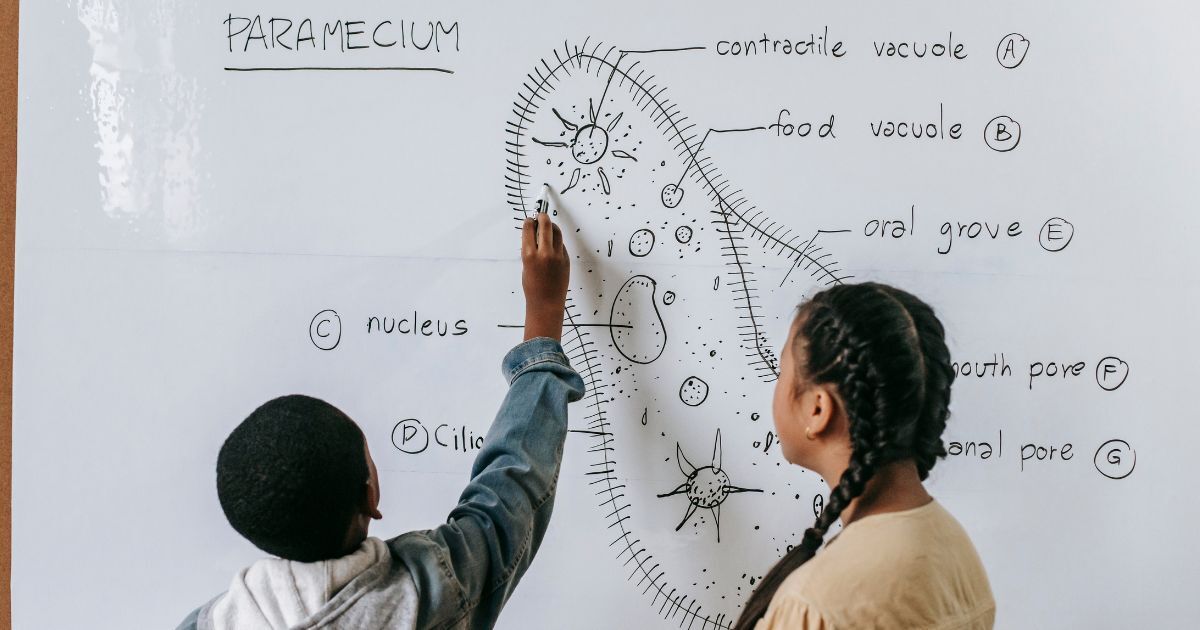 PARAMECIUM
contractile vacuole A
food vacuole B
oral grove E
C nucleus
pore F
D
anal pore G